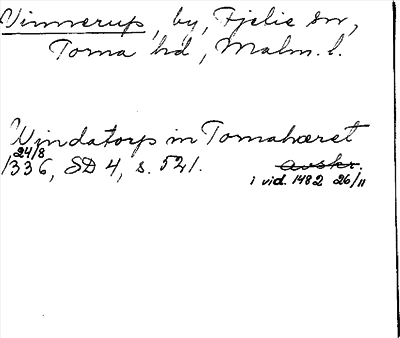 Vinnerup, by, Fjelie sn,
Torna hd, Malm. l.
Windatorp in Tornahæret
24/8
1336, SD 4, s. 521. avskr.
i vid. 1482 26/11